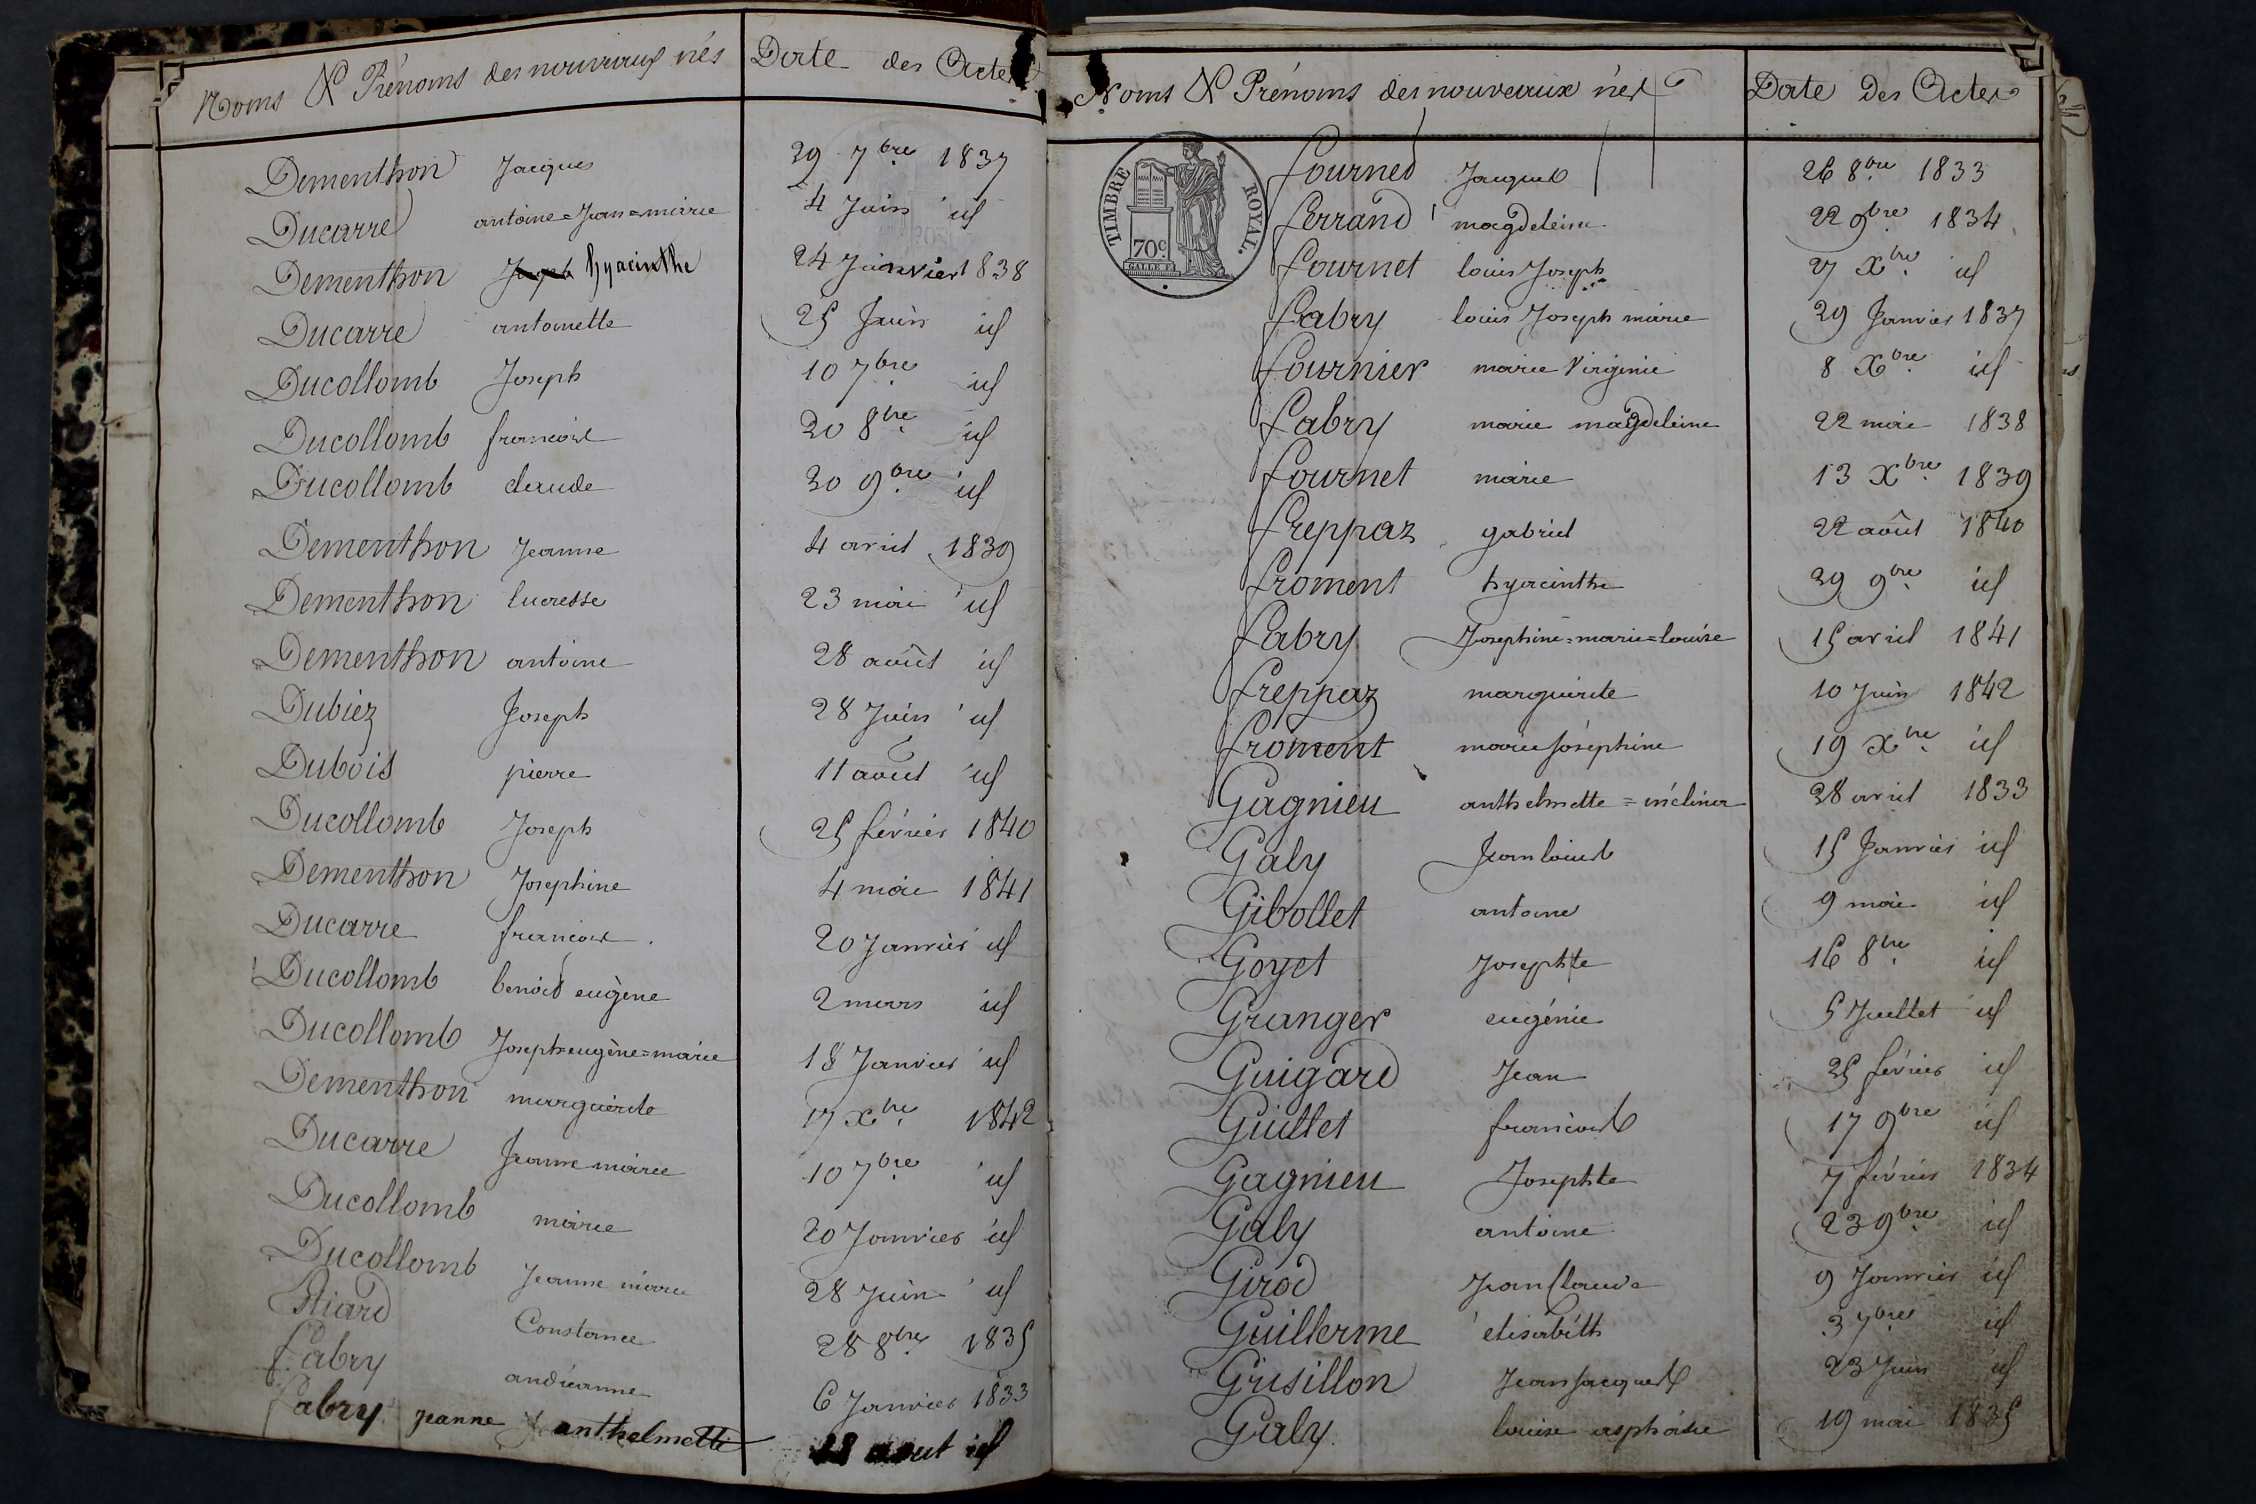 Noms & Prénoms des nouveaux nés Date des Actes
Dementhon Jacques 29 7bre 1837
Ducarre antoine=Jean=marie 4 Juin id
Dementhon Joseph hyacinthe 24 Janvier 1838
Ducarre antoinette 25 Juin id
Ducollomb Joseph 10 7bre id
Ducollomb francois 20 8bre id
Ducollomb claude 30 9bre id
Dementhon Jeanne 4 avril 1839
Dementhon lucresse 23 mai id
Dementhon antoine 28 août id
Dubiez Joseph 28 Juin id
Dubois pierre 11 août id
Ducollomb Joseph 25 février 1840
Dementhon Josephine 4 mai 1841
Ducarre francois 20 Janvier id
Ducollomb benoid eugène 2 mars id
Ducollomb Joseph=eugène=marie 18 Janvier id
Dementhon marguerite 17 Xbre 1842
Ducarre Jeanne marie 10 7bre id
Ducollomb marie 20 Janvier id
Ducollomb Jeanne marie 28 Juin id
Constance 28 8bre 1835
fabry andréanne 6 Janvier 1833
fabry Jeanne anthelmette aout id
Noms & Prénoms des nouveaux nés Date des Actes
TIMBRE ROYAL.
70c
fourned Jacques 26 8bre 1833
ferrand magdeleine 22 9bre 1834
fournet louis Joseph 27 Xbre id
fabry louis Joseph marie 29 Janvier 1837
fournier marie Virginie 8 Xbre id
fabry marie magdeleine 22 mai 1838
fournet marie 13 Xbre 1839
freppaz gabriel 22 août 1840
froment hyacinthe 29 9bre id
fabry Josephine=marie=louise 15 avril 1841
freppaz marguerite 10 Juin 1842
froment marie Joséphine 19 Xbre id
Gagnieu anthelmette=mélina 28 avril 1833
Galy Jean louis 15 Janvier id
Gibollet antoine 9 mai id
Goyet Josephte 16 8bre id
Granger eugénie 5 Juillet id
Guigard Jean 25 février id
Guillet francois 17 9bre id
Gagnieu Josephte 7 février 1834
Galy antoine 23 9bre id
Girod Jean Claude 9 Janvier id
Guillerme elisabéth 3 7bre id
Grisillon Jean Jacques 23 Juin id
Galy louise asphasie 19 mai 1835